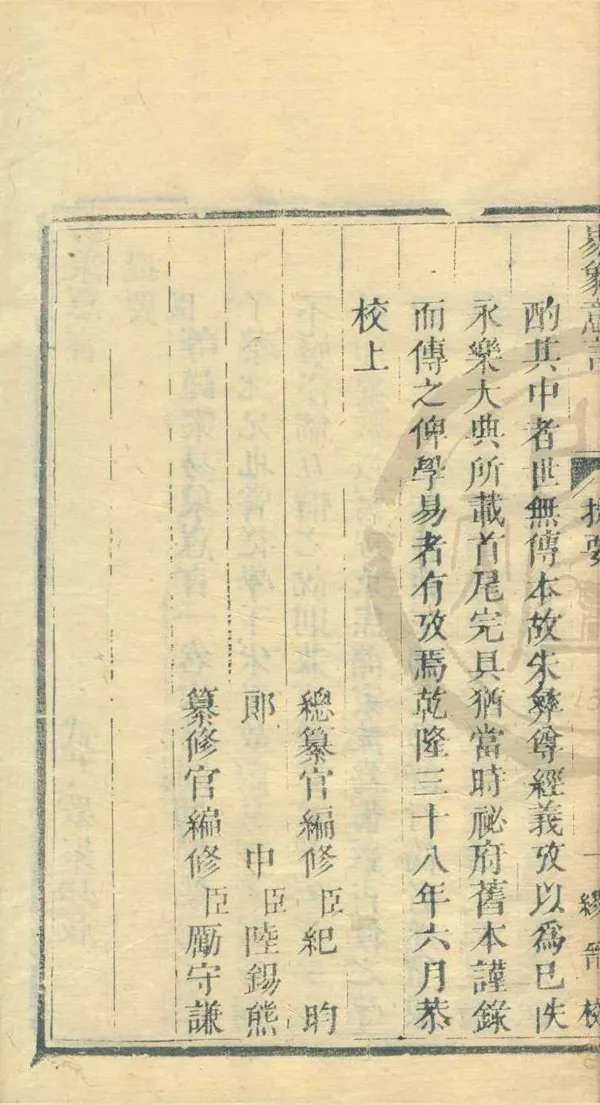 易象意言
提要
一
繆晉校
酌其中者世無傳本故朱彝尊經義攷以為已佚
永樂大典所載首尾完具猶當時祕府舊本謹錄
而傳之俾學易者有攷焉乾隆三十八年六月恭
校上
總纂官編修臣紀昀
郎中臣陸錫熊
纂修官編修臣勵守謙